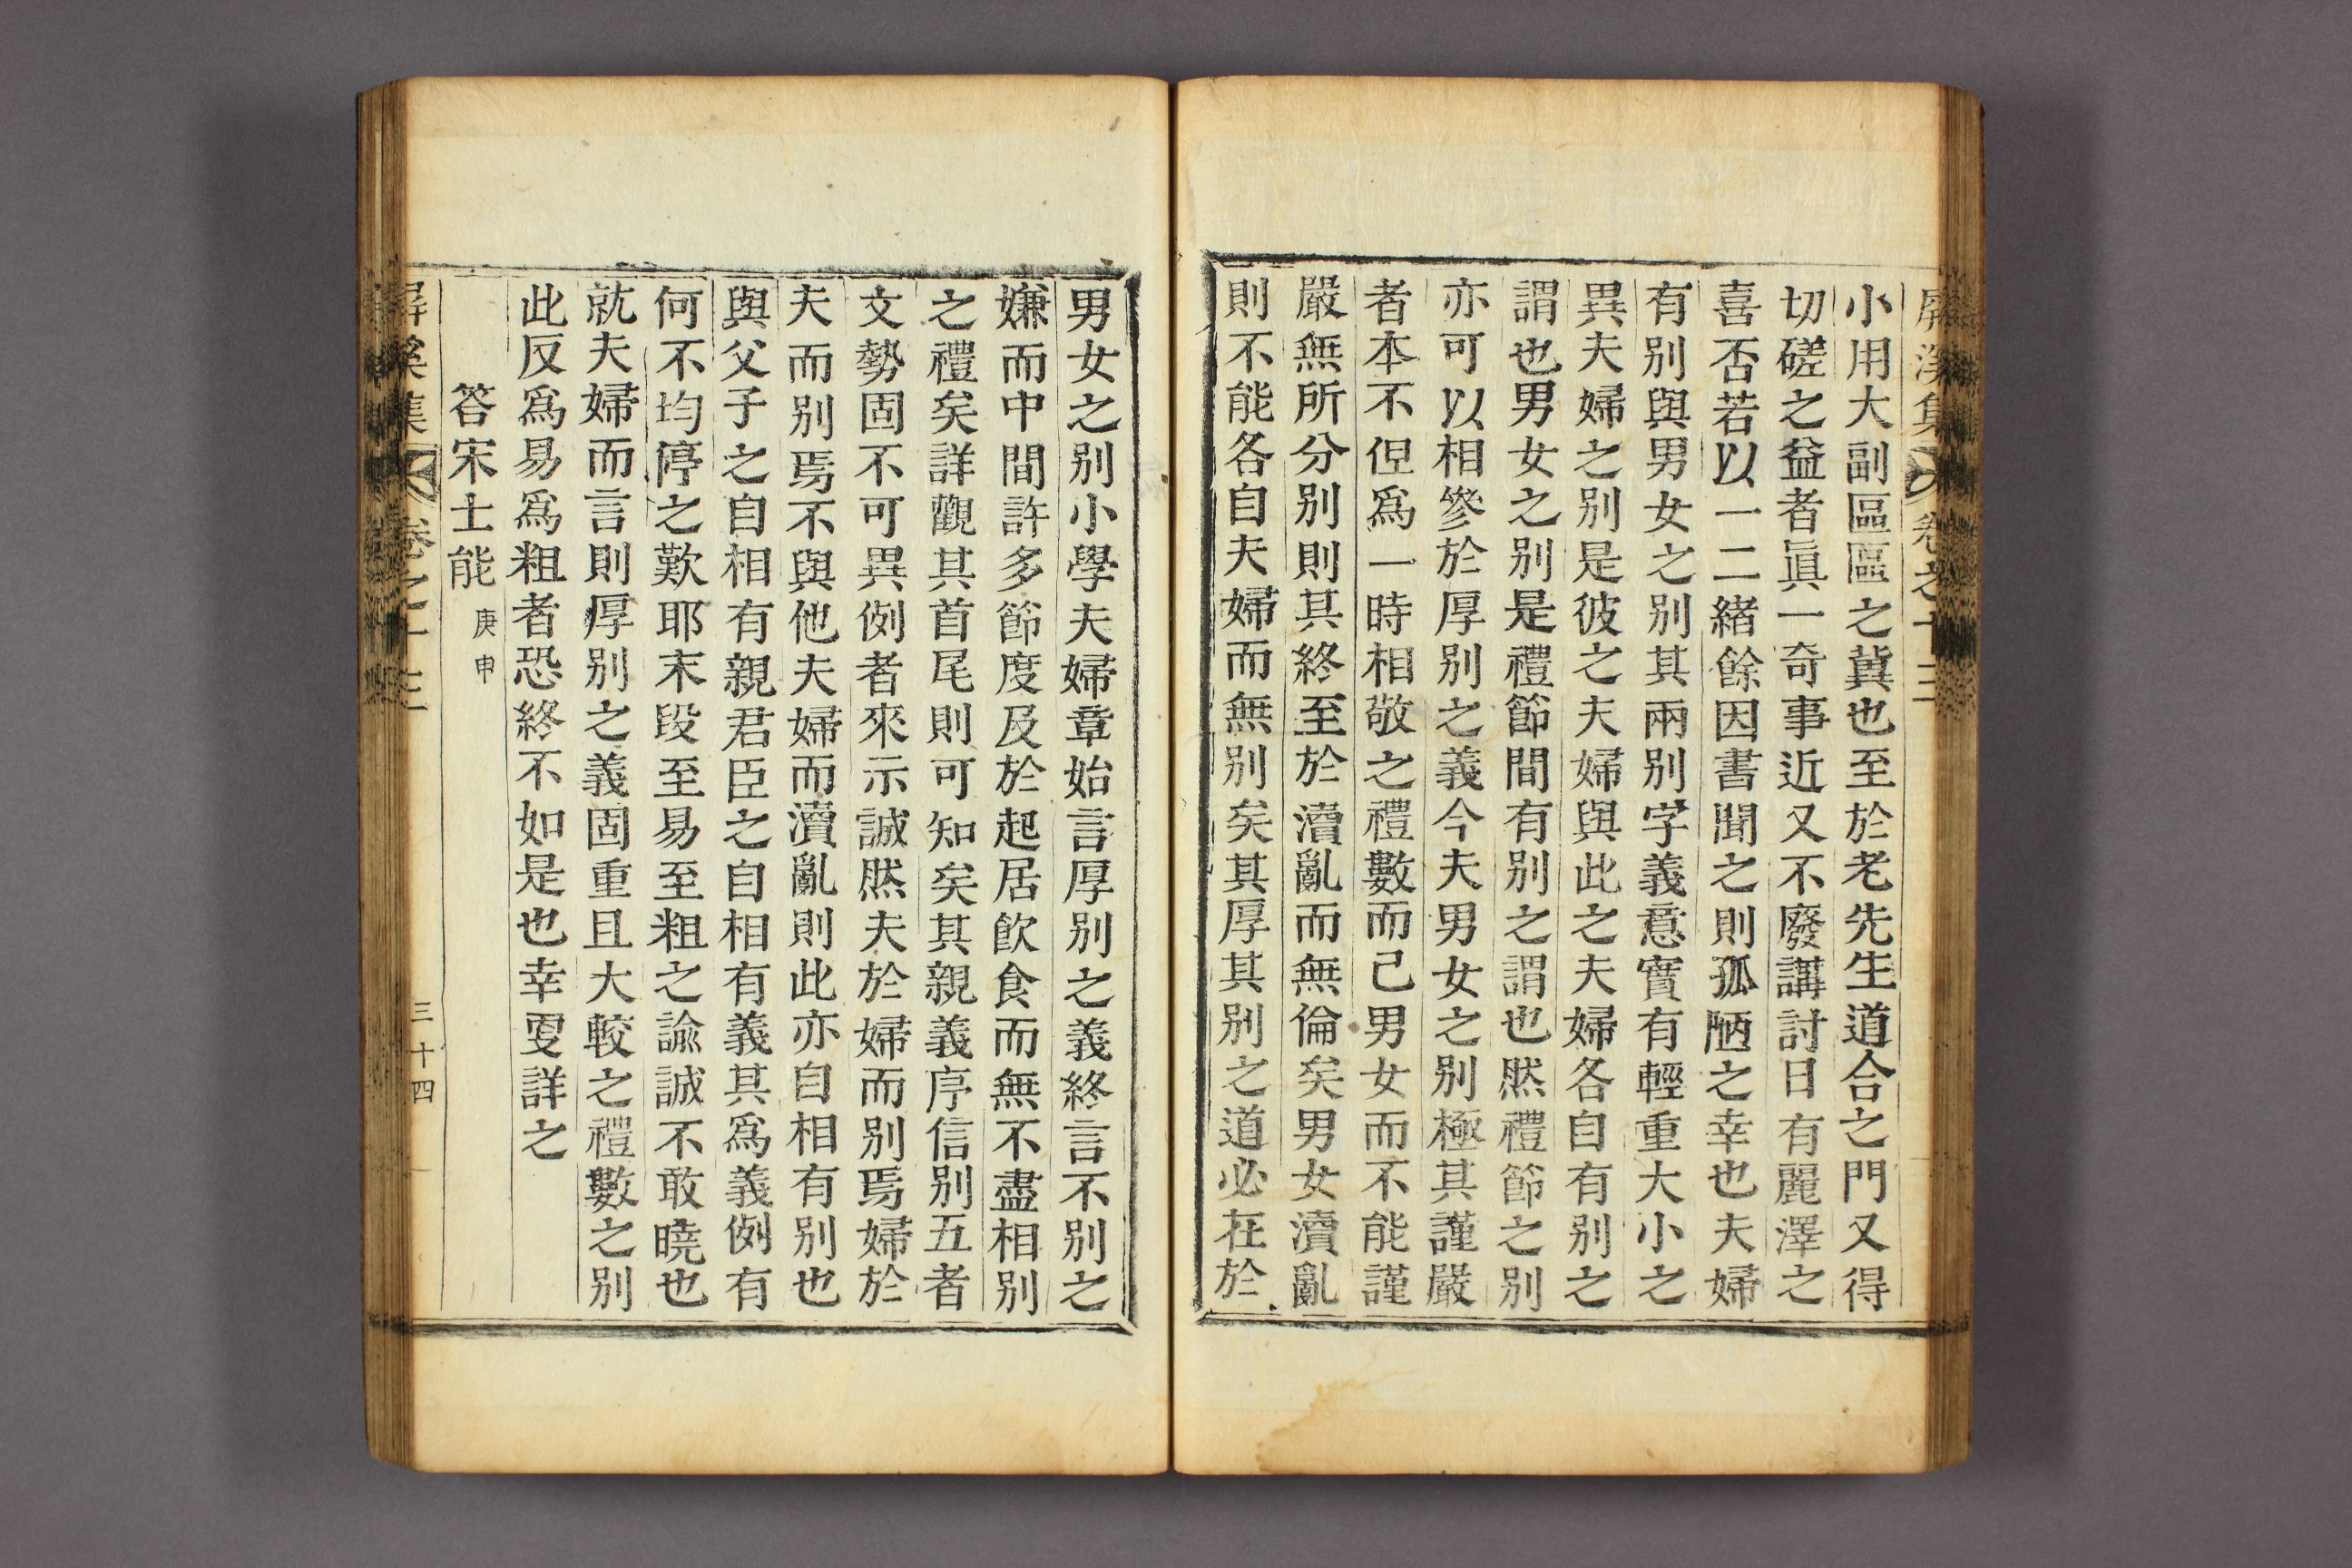 屛溪集 卷之十三
小用大副區區之冀也至於老先生道合之門又得
切磋之益者眞一奇事近又不廢講討日有麗澤之
喜否若以一二緒餘因書聞之則孤陋之幸也夫婦
有別與男女之別其兩別字義意實有輕重大小之
異夫婦之別是彼之夫婦與此之夫婦各自有別之
謂也男女之別是禮節間有別之謂也然禮節之別
亦可以相參於厚別之義今夫男女之別極其謹嚴
者本不但爲一時相敬之禮數而已男女而不能謹
嚴無所分別則其終至於瀆亂而無倫矣男女瀆亂
則不能各自夫婦而無別矣其厚其別之道必在於
男女之別小學夫婦章始言厚別之義終言不別之
嫌而中間許多節度及於起居飮食而無不盡相別
之禮矣詳觀其首尾則可知矣其親義序信別五者
文勢固不可異例者來示誠然夫於婦而別焉婦於
夫而別焉不與他夫婦而瀆亂則此亦自相有別也
與父子之自相有親君臣之自相有義其爲義例有
何不均停之歎耶末段至易至粗之諭誠不敢曉也
就夫婦而言則厚別之義固重且大較之禮數之別
此反爲易爲粗者恐終不如是也幸更詳之
答宋士能 庚申
屛溪集 卷之十三 三十四